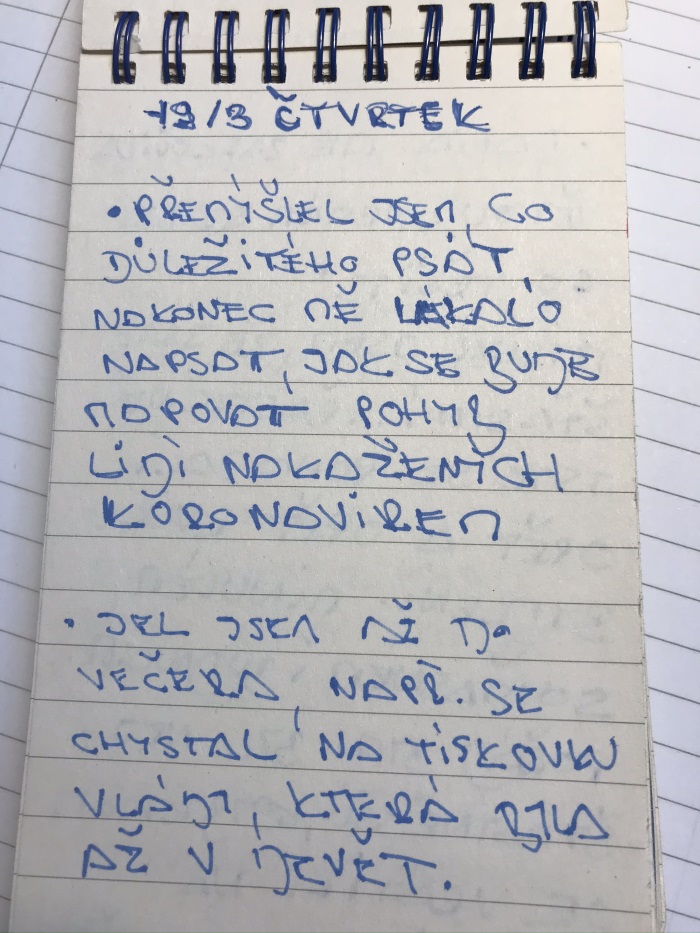 19/3 ČTVRTEK
• PŘEMÝŠLEL JSEM, CO
DŮLEŽITÉHO PSÁT,
NAKONEC MĚ LÁKALO
NAPSAT, JAK SE BUDE
MAPOVAT POHYB
LIDÍ NAKAŽENÝCH
KORONAVIREM
• JEL JSEM AŽ DO
VEČERA, NAPŘ. SE
CHYSTAL NA TISKOVKU
VLÁDY, KTERÁ BYLA
AŽ V DEVĚT.